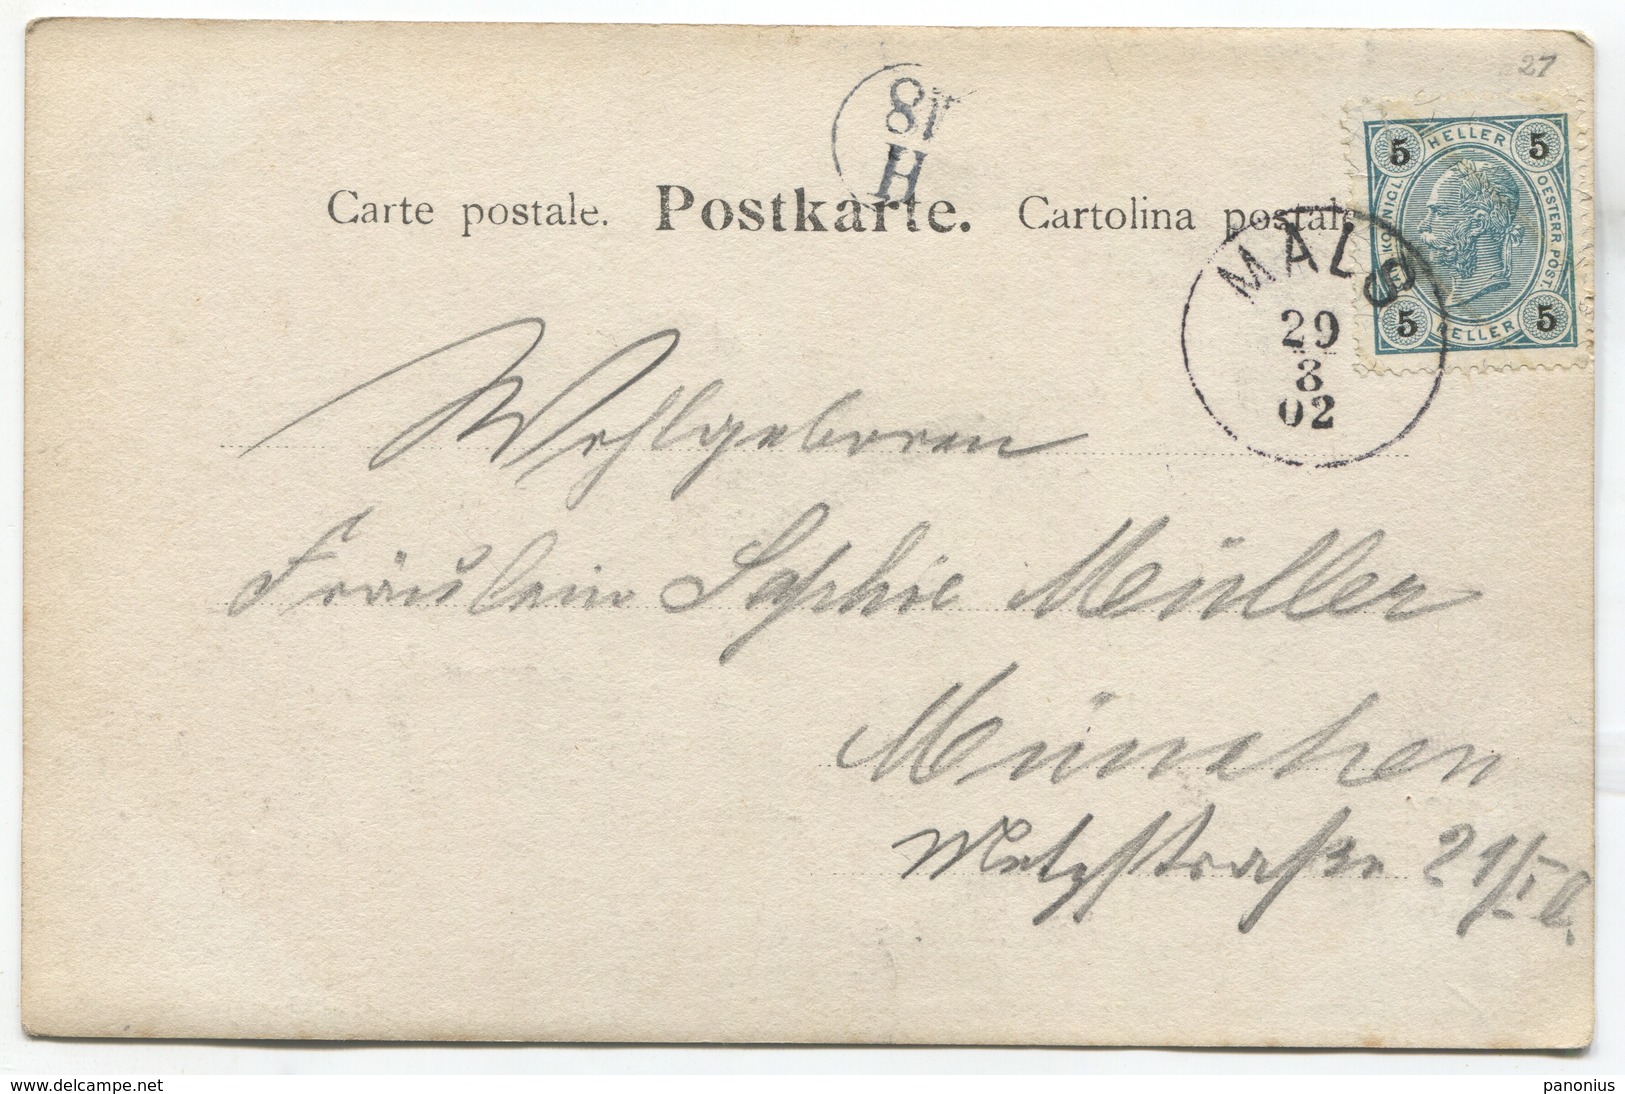 27
18
H
Carte postale. Postkarte. Cartolina postale
5 HELLER 5
KAIS. KÖNIGL. OESTERR. POST.
5 HELLER 5
MALS
29
8
02
Wohlgeboren
Fräulein Sophie Müller
München
Metzstraße 21/I l.
www.delcampe.net
panonius